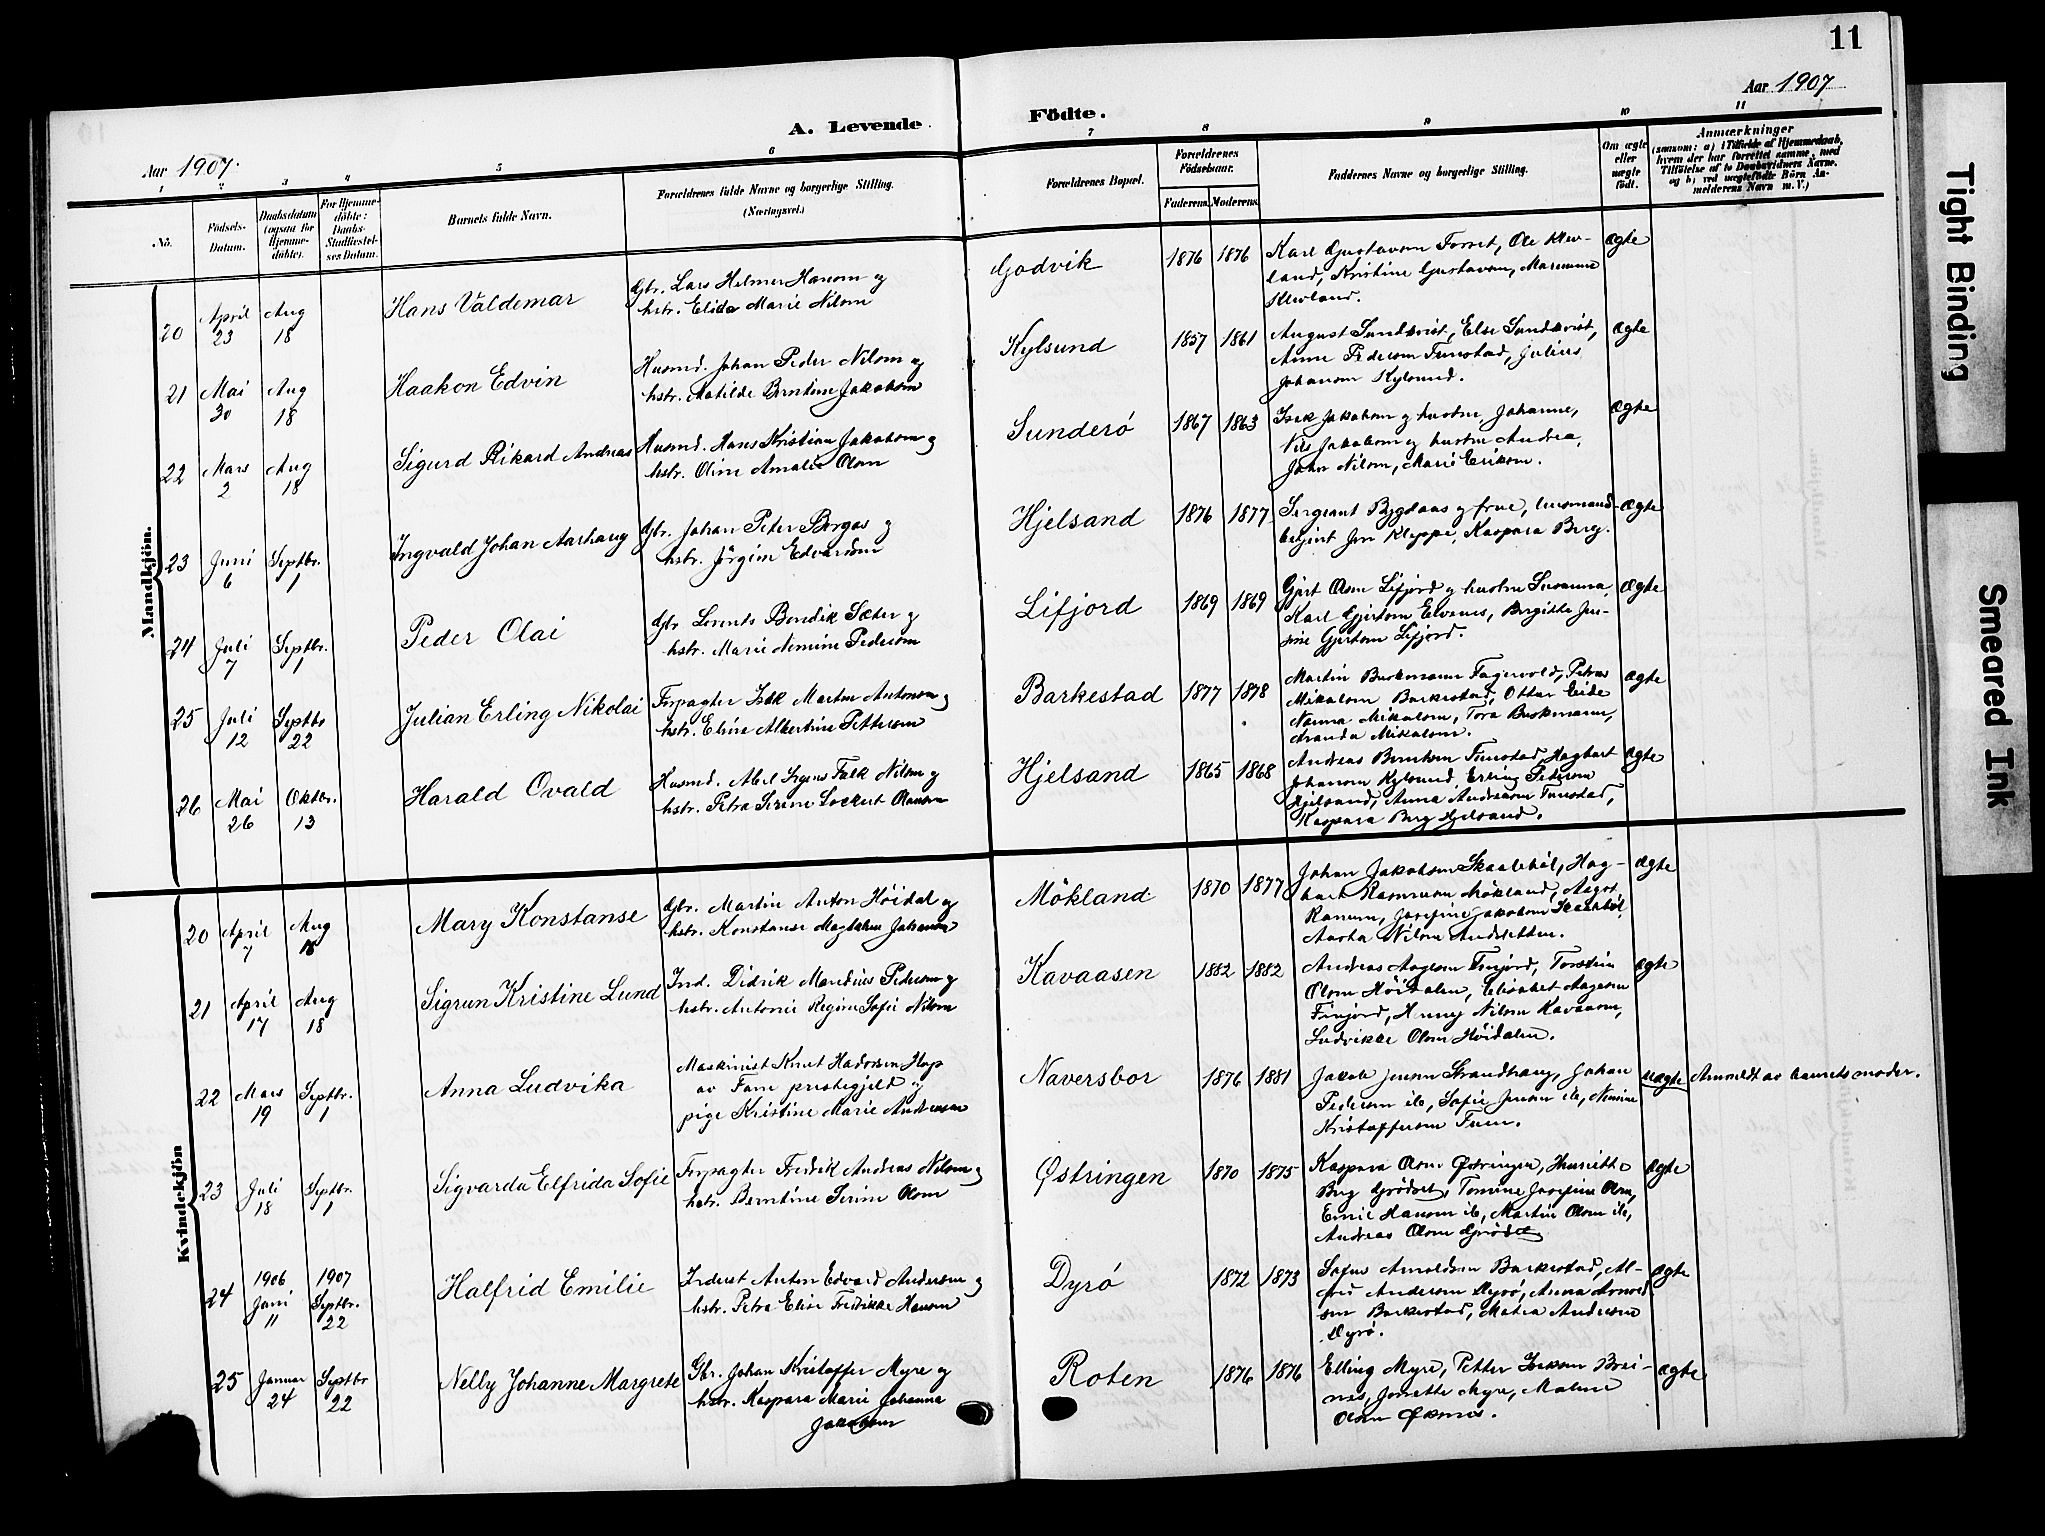 11
Aar 1907
A. Levende Födte.
Aar 1907.
1 2 3 4 5 6 7 8 9 10 11
No.
Födsels-Datum.
Daabsdatum (ogsaa for Hjemme-döbte).
For Hjemme-döbte: Daabs-Stadfæstel-ses Datum.
Barnets fulde Navn.
Forældrenes fulde Navne og borgerlige Stilling.
(Næringsvei.)
Forældrenes Bopæl.
Forældrenes Födselsaar.
Faderens. Moderens.
Faddernes Navne og borgerlige Stilling.
Om ægte eller uægte födt.
Anmærkninger
(saasom: a) i Tilfælde af Hjemmedaab,
hvem der har forrettet samme, med
Tilföielse af to Daabsvidners Navne.
og b) ved uægtefödte Börn An-
melderens Navn m. V.)
Mandkjön.
20 April 23 Aug 18 Hans Valdemar
Gbr. Lars Helmer Hansen og
hstr. Elida Marie Nilsen
Godvik 1876 1876
Karl Gustavsen Forset, Ole Klev-
land, Kristine Gustavsen, Marianne
Klevland.
ægte
21 Mai 30 Aug 18 Haakon Edvin
Husmd. Johan Peder Nilsen og
hstr. Matilde Berntine Jakobsen
Kylsund 1857 1861
August Sundkvist, Else Sundkvist,
Anne Pedersen Tunstad, Julius
Johansen Kylsund.
ægte
22 Mars 2 Aug 18 Sigurd Rikard Andreas
Husmd. Hans Kristian Jakobsen og
hstr. Oline Amalie Olsen
Sunderö 1867 1863
Isak Jakobsen og hustru Johanne,
Nils Jakobsen og hustru Andrea,
Johan Nilsen, Marie Eriksen.
ægte
23 Juni 6 Septbr. 1 Ingvald Johan Aarhaug
Gbr. Johan Peter Borgos og
hstr. Jörgine Edvardsen
Hjelsand 1876 1877
Sergeant Bygdaas og frue, lensmand-
betjent Jon Kleppe, Kaspara Berg.
ægte
24 Juli 7 Septbr. 1 Peder Olai
Gbr Lorents Bendik Sæter og
hstr. Marie Nemine Pedersen
Lifjord 1869 1869
Gjert Olsen Lifjord og hustru Susanna,
Karl Gjertsen Elvenes, Bergitte Jen-
sine Gjertsen Lifjord.
ægte
25 Juli 12 Septbr 22 Julian Erling Nikolai
Forpagter Isak Morten Antonsen og
hstr. Eline Albertine Pettersen
Barkestad 1877 1878
Martin Buckmann Fagervold, Petras
Mikalsen Barkestad, Ottar Eide
Nanna Mikalsen, Tora Buckmann,
Aranda Mikalsen.
ægte
26 Mai 26 Oktbr. 13 Harald Ovald
Husmd. Abel Irgens Falk Nilsen og
hstr. Petra Serine Lockert Olausen
Hjelsand 1865 1868
Andreas Berntsen Tunstad, Hagbart
Johansen Kylsund, Erling Pedersen
Hjelsand, Anna Andreasen Tunstad,
Kaspara Berg Hjelsand.
ægte
Kvindekjön
20 April 7 Aug 18 Mary Konstanse
Gbr. Martin Anton Höidal og
hstr. Konstanse Magdalena Johansen
Mökland 1870 1877
Johan Jakobsen Skaaleböl, Hag-
bart Rasmussen Mökland, Aagot
Ranum, Josefine Jakobsen Skaaleböl,
Aasta Nilsen Andsetten.
ægte
21 April 17 Aug 18 Sigrun Kristine Lund
Ind. Didrik Mandrius Pedersen og
hstr. Antonie Regine Sofie Nilsen
Kavaasen 1882 1882
Andreas Aagesen Finjord, Torstein
Olsen Höidalen, Elisabet Aagesen
Finjord, Henny Nilsen Kavaasen,
Ludvikke Olsen Höidalen.
ægte
22 Mars 19 Septbr. 1 Anna Ludvika
Maskinist Knut Hadorsen Hop
av Fane prestegjeld og
pige Kristine Marie Andersen
Naversbor 1876 1881
Jakob Jensen Strandhaug, Johan
Pedersen ib, Sofie Jensen ib, Nemine
Kristoffersen Tuen.
uægte Anmeldt av barnets moder.
23 Juli 18 Septbr. 1 Sigvarda Elfrida Sofie
Forpagter Fredrik Andreas Nilsen og
hstr. Berntine Serine Olsen
Østringen 1870 1875
Kaspara Olsen Østringen, Henriette
Berg Grödset, Tomine Josefine Olsen,
Emil Hansen ib, Martin Olsen ib,
Andreas Olsen Grödset
ægte
24 1906 Juni 11 1907 Septbr. 22 Halfrid Emilie
Inderst Anton Edvard Andersen og
hstr. Petra Elise Fredrikke Hansen
Dyrö 1872 1873
Sofus Arnoldsen Barkestad, Al-
fred Andersen Dyrö, Anna Arnold
sen Barkestad, Matea Andersen
Dyrö.
ægte
25 Januar 24 Septbr 22 Nelly Johanne Margrete
Gbr. Johan Kristoffer Myre og
hstr. Kaspara Marie Johanna
Jakobsen
Roten 1876 1876
Elling Myre, Petter Isaksen Brei-
nes, Jonette Myre, Malene
Olsen Øksnes.
ægte
Tight Binding
Smeared Ink